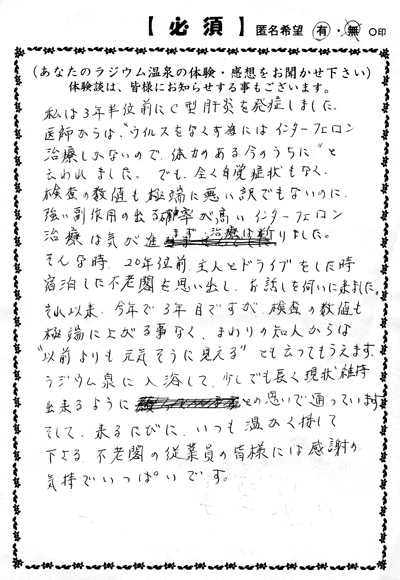 【必須】 匿名希望 有・無 ○印
(あなたのラジウム温泉の体験・感想をお聞かせ下さい)
体験談は、皆様にお知らせする事もございます。
私は3年半位前にC型肝炎を発症しました。
医師からは、"ウイルスをなくす為にはインターフェロン
治療しかないので、体力のある今のうちに"と
云われました。でも、全く自覚症状もなく、
検査の数値も極端に悪い訳でもないのに、
強い副作用の出る確率が高いインターフェロン
治療は気が進まず、治療は断りました。
そんな時、20年位前、主人とドライブをした時
宿泊した不老閣を思い出し、お話しを伺いに来ました。
それ以来、今年で3年目ですが、検査の数値も
極端に上がる事なく、まわりの知人からは
"以前よりも元気そうに見える"とも云ってもらえます。
ラジウム泉に入浴して、少しでも長く現状維持
出来るように との思いで通っています
そして、来るたびに、いつも温かく接して
下さる、不老閣の従業員の皆様には感謝の
気持でいっぱいです。